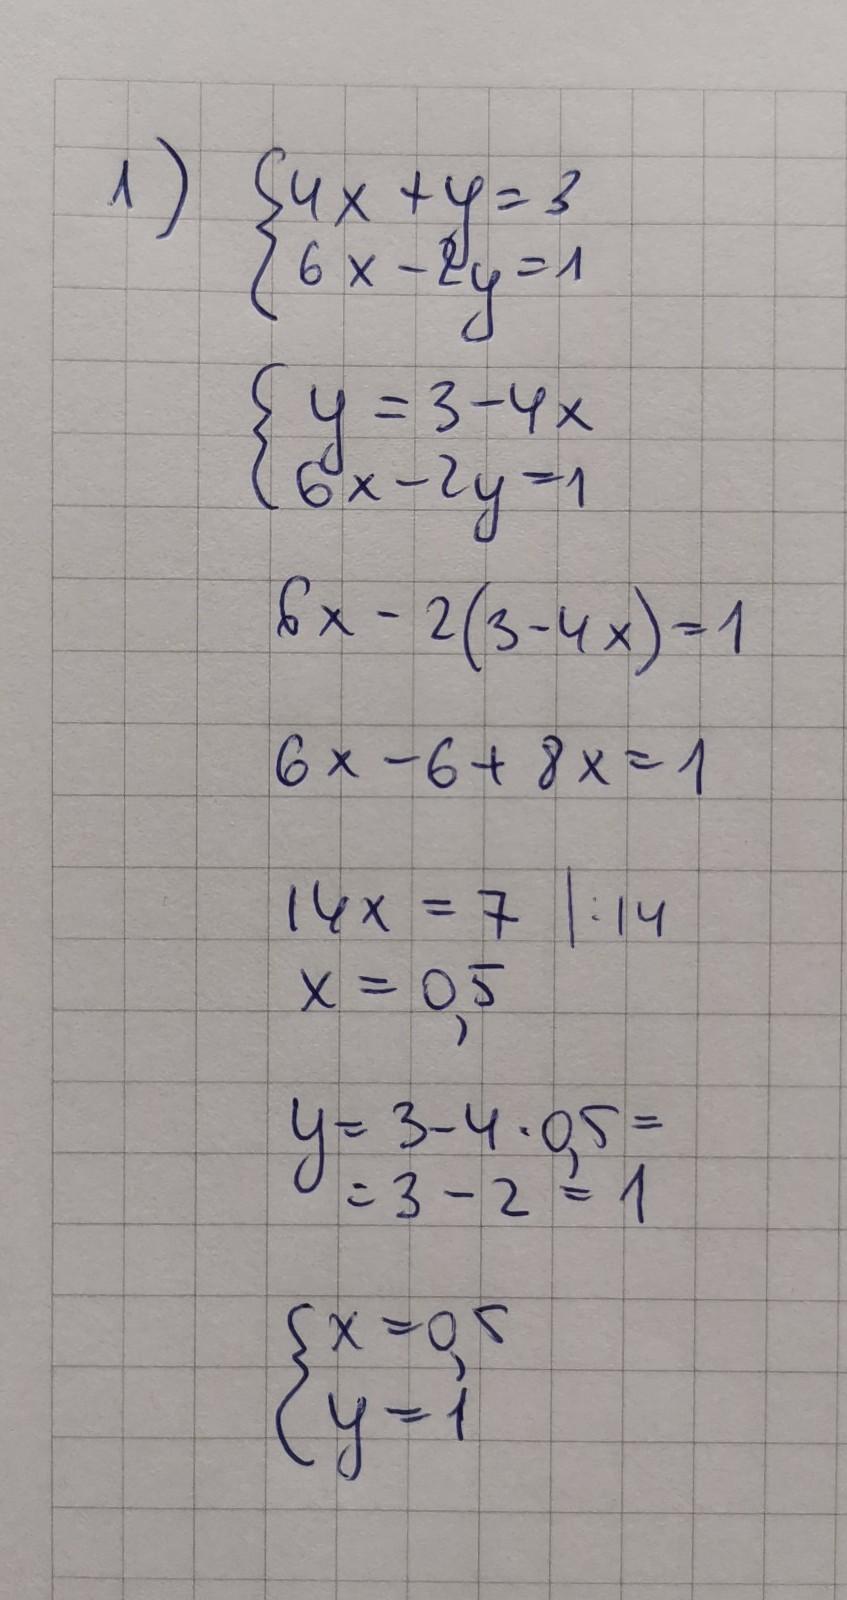 1) {4x + y = 3
{6x - 2y = 1
{y = 3 - 4x
{6x - 2y = 1
6x - 2(3 - 4x) = 1
6x - 6 + 8x = 1
14x = 7 |:14
x = 0,5
y = 3 - 4 · 0,5 =
= 3 - 2 = 1
{x = 0,5
{y = 1